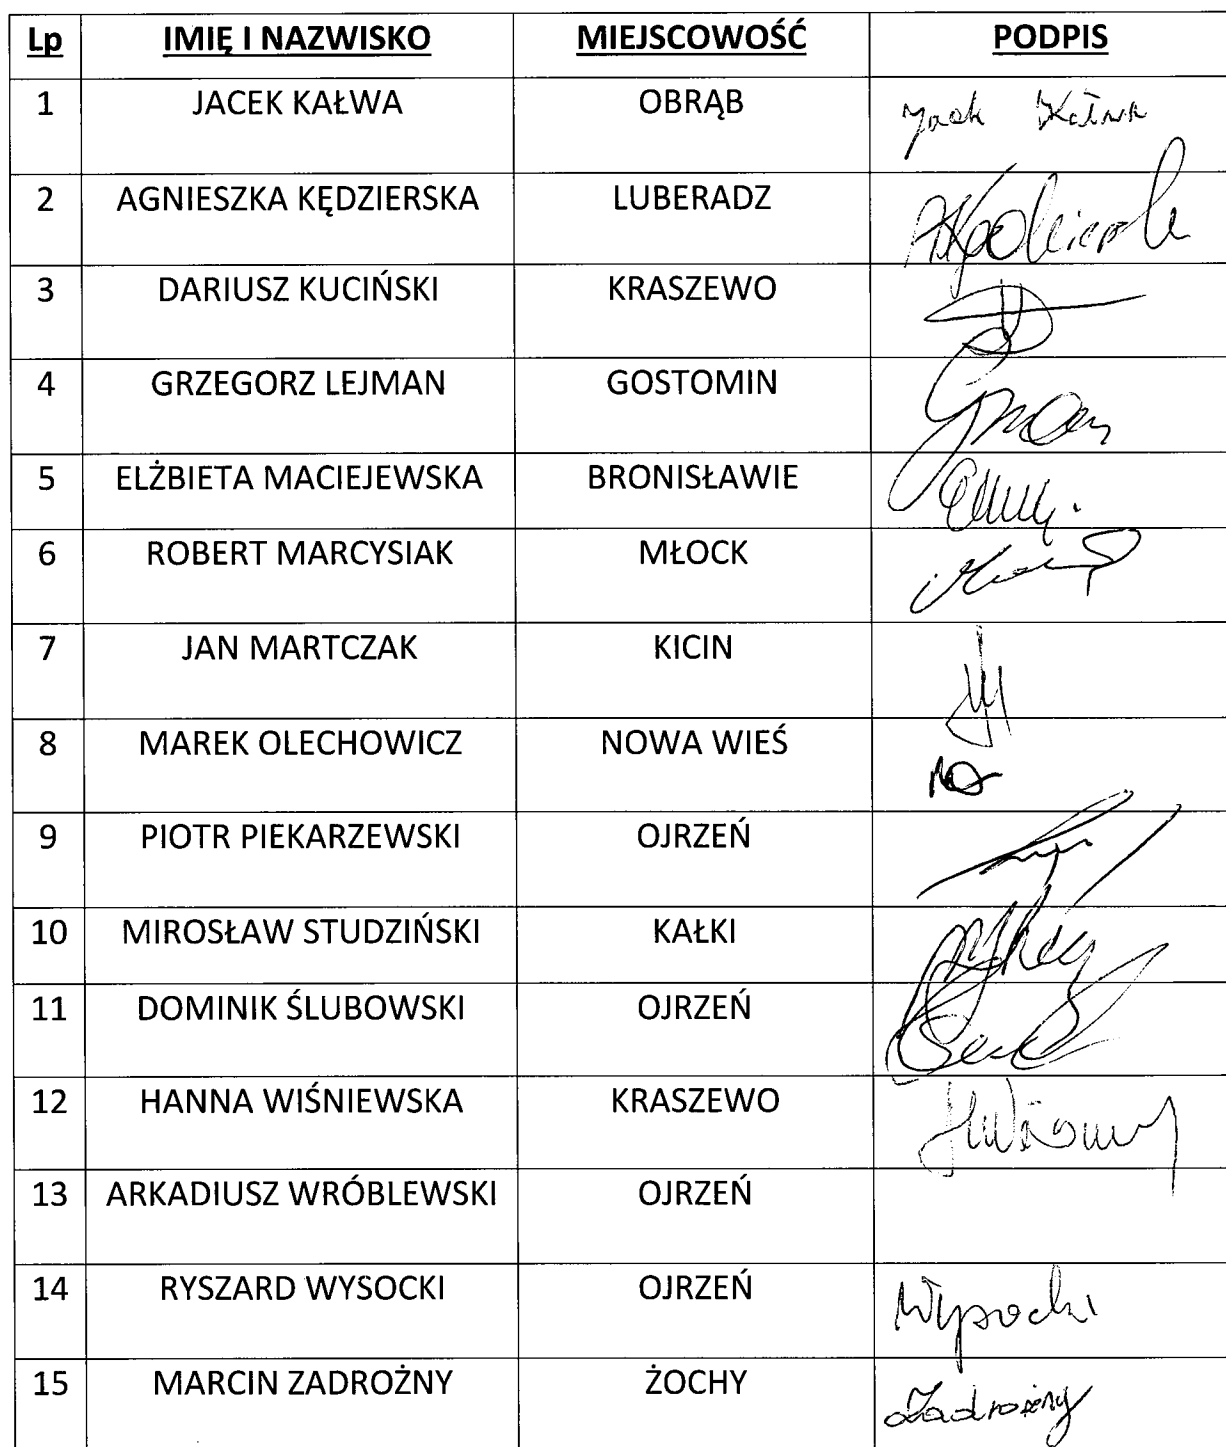 Lp IMIĘ I NAZWISKO MIEJSCOWOŚĆ PODPIS
1 JACEK KAŁWA OBRĄB
2 AGNIESZKA KĘDZIERSKA LUBERADZ
3 DARIUSZ KUCIŃSKI KRASZEWO
4 GRZEGORZ LEJMAN GOSTOMIN
5 ELŻBIETA MACIEJEWSKA BRONISŁAWIE
6 ROBERT MARCYSIAK MŁOCK
7 JAN MARTCZAK KICIN
8 MAREK OLECHOWICZ NOWA WIEŚ
9 PIOTR PIEKARZEWSKI OJRZEŃ
10 MIROSŁAW STUDZIŃSKI KAŁKI
11 DOMINIK ŚLUBOWSKI OJRZEŃ
12 HANNA WIŚNIEWSKA KRASZEWO
13 ARKADIUSZ WRÓBLEWSKI OJRZEŃ
14 RYSZARD WYSOCKI OJRZEŃ Wysocki
15 MARCIN ZADROŻNY ŻOCHY Zadrożny